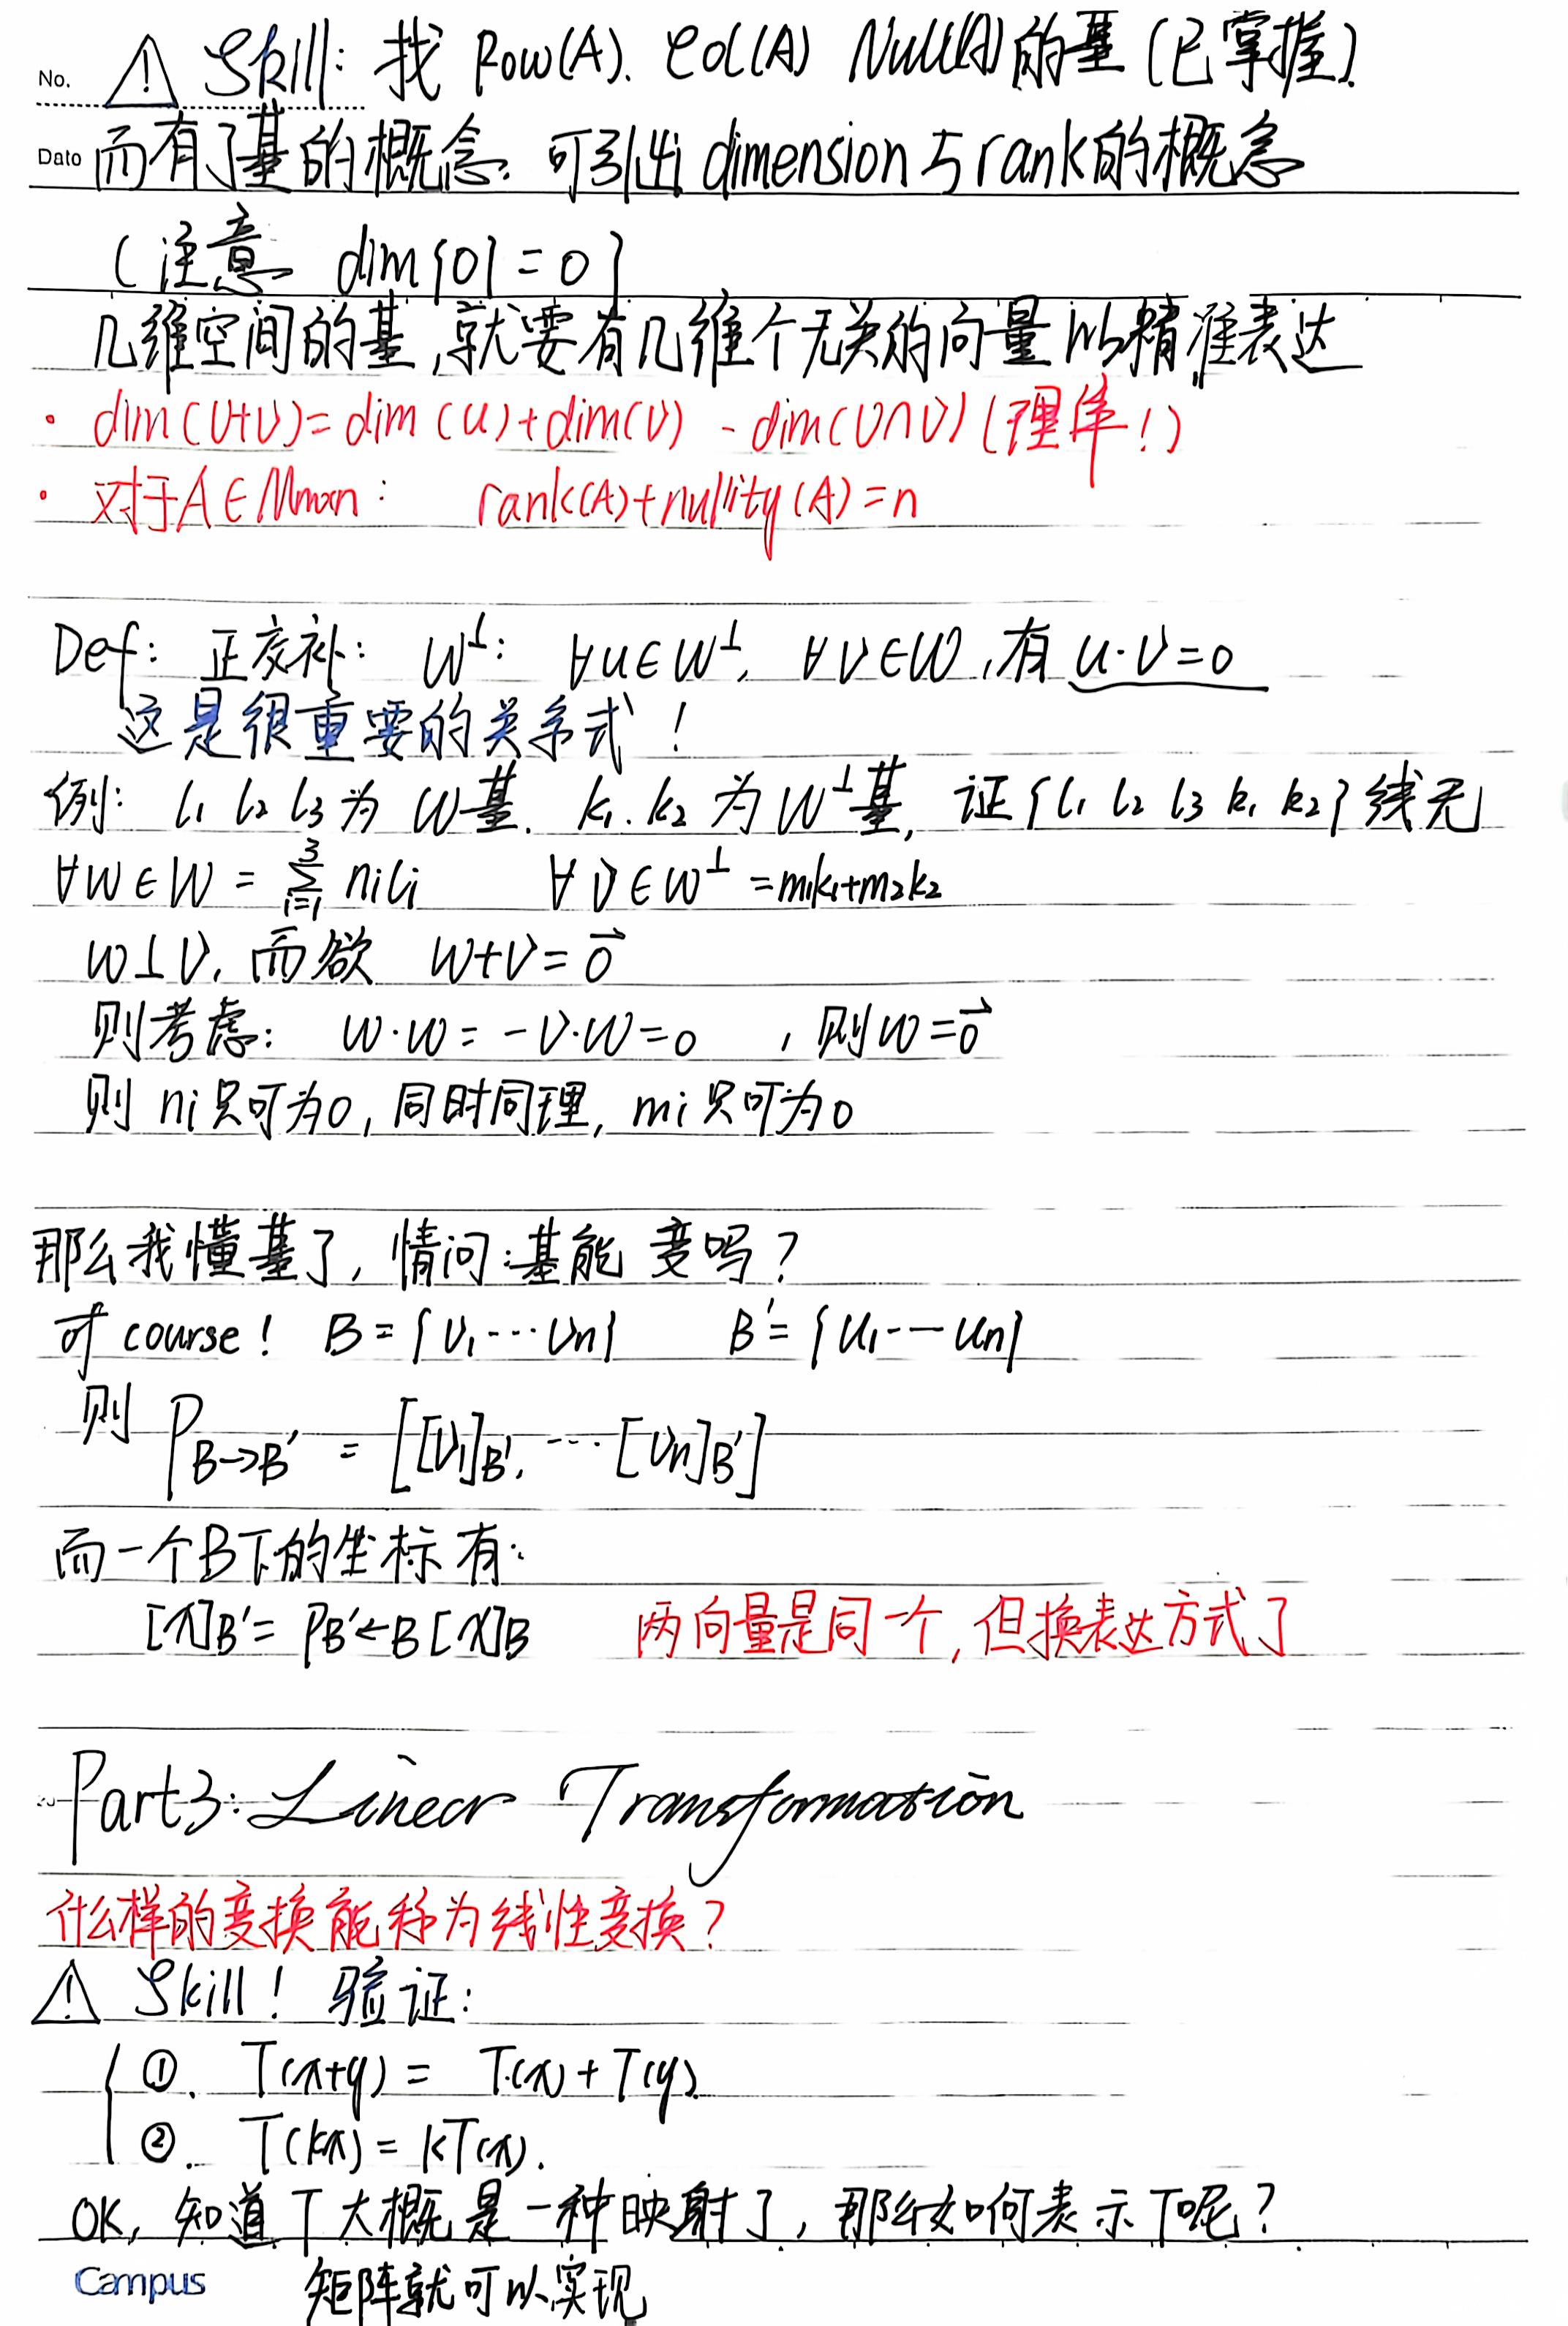 No. ⚠ Skill: 找 Row(A). Col(A) Null(A)的基 (已掌握).
Date 而有了基的概念. 可引出 dimension 与 rank的概念
(注意 dim{0} = 0)
几维空间的基,就要有几维个无关的向量以精准表达
· dim(U+V)=dim(U)+dim(V) -dim(U∩V) (理解!)
· 对于A∈Mmxn: rank(A)+nullity(A)=n
Def: 正交补: W⊥: ∀u∈W⊥, ∀v∈W,有 u·v=0
这是很重要的关系式!
例: l₁ l₂ l₃ 为 W基. k₁. k₂ 为W⊥基, 证{l₁ l₂ l₃ k₁ k₂}线无
∀w∈W = ∑³ᵢ₌₁ nᵢlᵢ ∀v∈W⊥ =m₁k₁+m₂k₂
w⊥v, 而欲 w+v=0⃗
则考虑: w·w = -v·w=0 ,则w=0⃗
则 ni只可为0, 同时同理, mi只可为0
那么我懂基了, 情问:基能变吗?
of course! B={v₁···vn} B′={u₁---un}
则 P B→B′ = [[v₁]B′, ··· [vn]B′]
而一个B下的坐标有:
[x]B′= PB′←B [x]B 两向量是同一个,但换表达方式了
Part3: Linear Transformation
什么样的变换能称为线性变换?
⚠ Skill! 验证:
①. T(x+y) = T(x)+T(y)
②. T(kx)=kT(x).
OK, 知道T大概是一种映射了, 那么如何表示T呢?
Campus 矩阵就可以实现